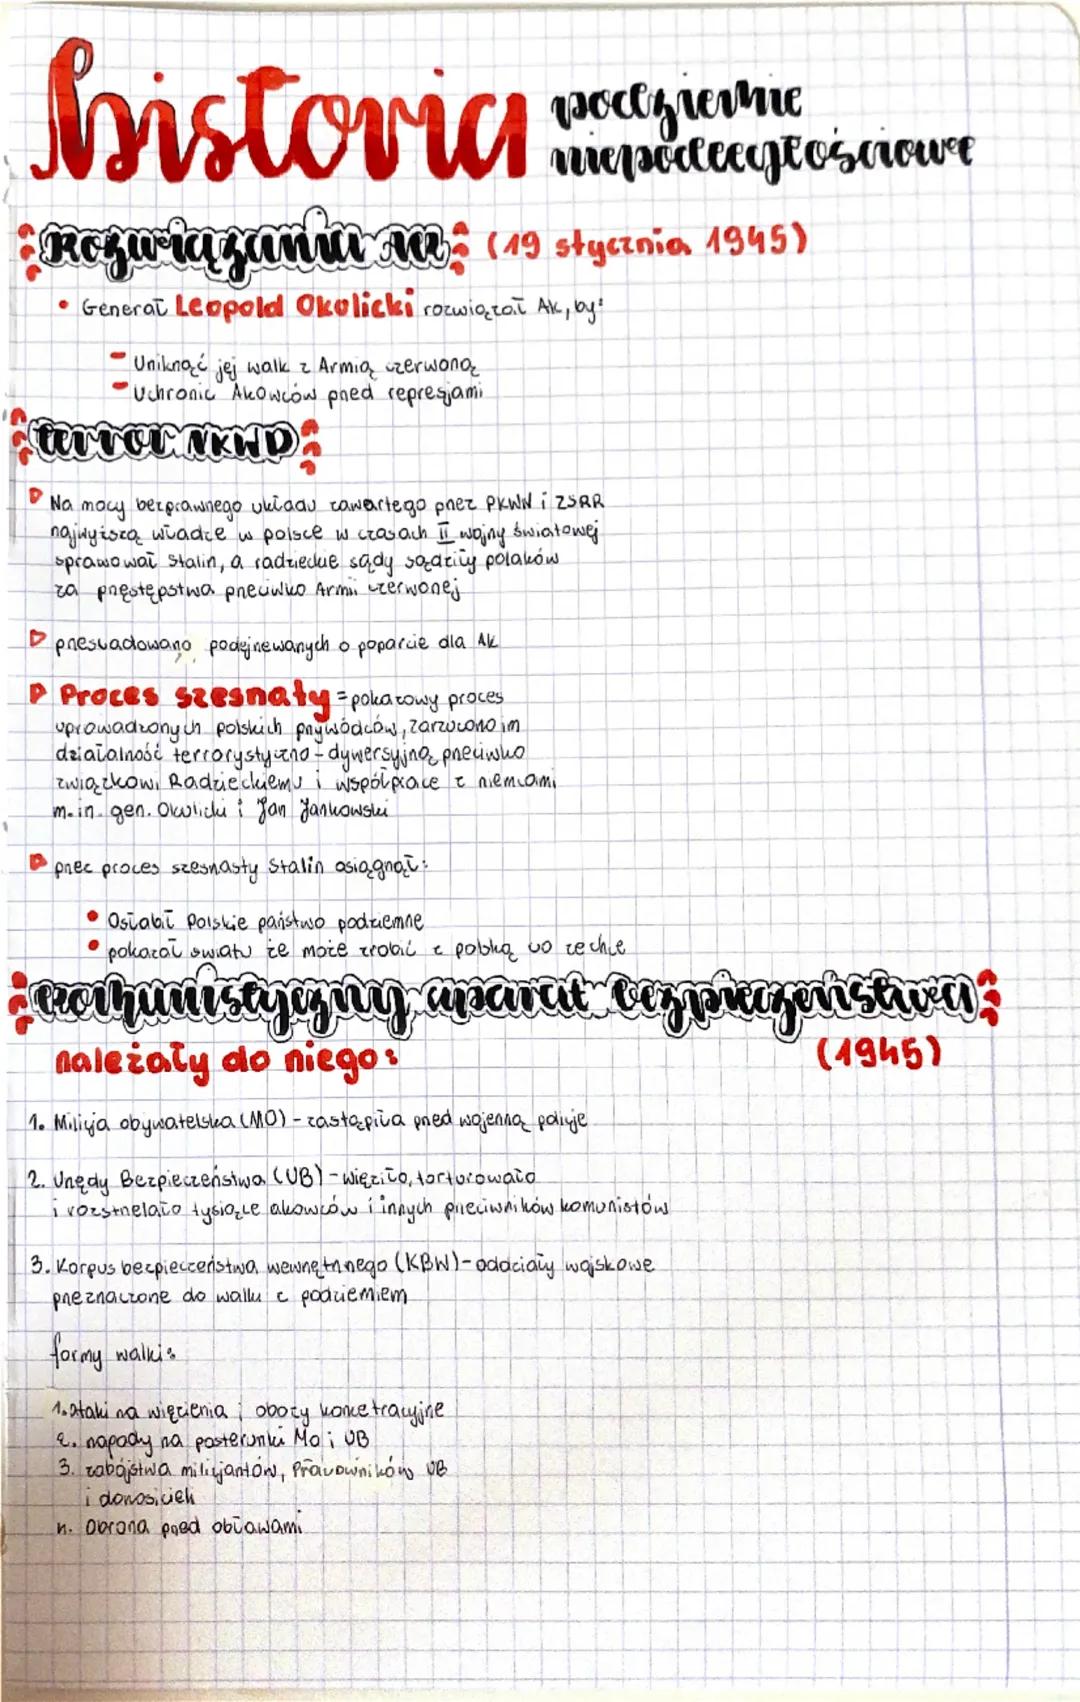 historia podziemie
niepodległościowe
Rozwiązania AK (19 stycznia 1945)
• Generał Leopold Okolicki rozwiązał AK, by:
- Uniknąć jej walk z Armią czerwoną
- Uchronić Akowców przed represjami
terror NKWD
Na mocy bezprawnego układu zawartego przez PKWN i ZSRR
najwyższą władze w polsce w czasach II wojny światowej
sprawował Stalin, a radzieckie sądy sądziły polaków
za przęstępstwa przeciwko Armii czerwonej
prześladowano podejrzewanych o poparcie dla AK
Proces szesnaty = pokazowy proces
uprowadzonych polskich przywódców, zarzucono im
działalność terrorystyczno - dywersyjną przeciwko
związkowi Radzieckiemu i współprace z niemcami
m.in. gen. Okulicki i Jan Jankowski
przez proces szesnasty Stalin osiągnął:
• Osłabił Polskie państwo podziemne
• pokazał światu że może zrobić z polską co zechce
komunistyczny aparat bezpieczeństwa
należały do niego: (1945)
1. Milicja obywatelska (MO) - zastąpiła przed wojenną policje
2. Urzędy Bezpieczeństwa (UB) - więziło, torturowało
i rozstrzelało tysiące akowców i innych przeciwników komunistów
3. Korpus bezpieczeństwa wewnętrznego (KBW) - oddziały wojskowe
przeznaczone do walki z podziemiem
formy walki:
1. ataki na więzienia i obozy koncetracyjne
2. napady na posterunki Mo i UB
3. zabójstwa milicjantów, Pracowników UB
i donosicieli
4. Obrona przed obławami